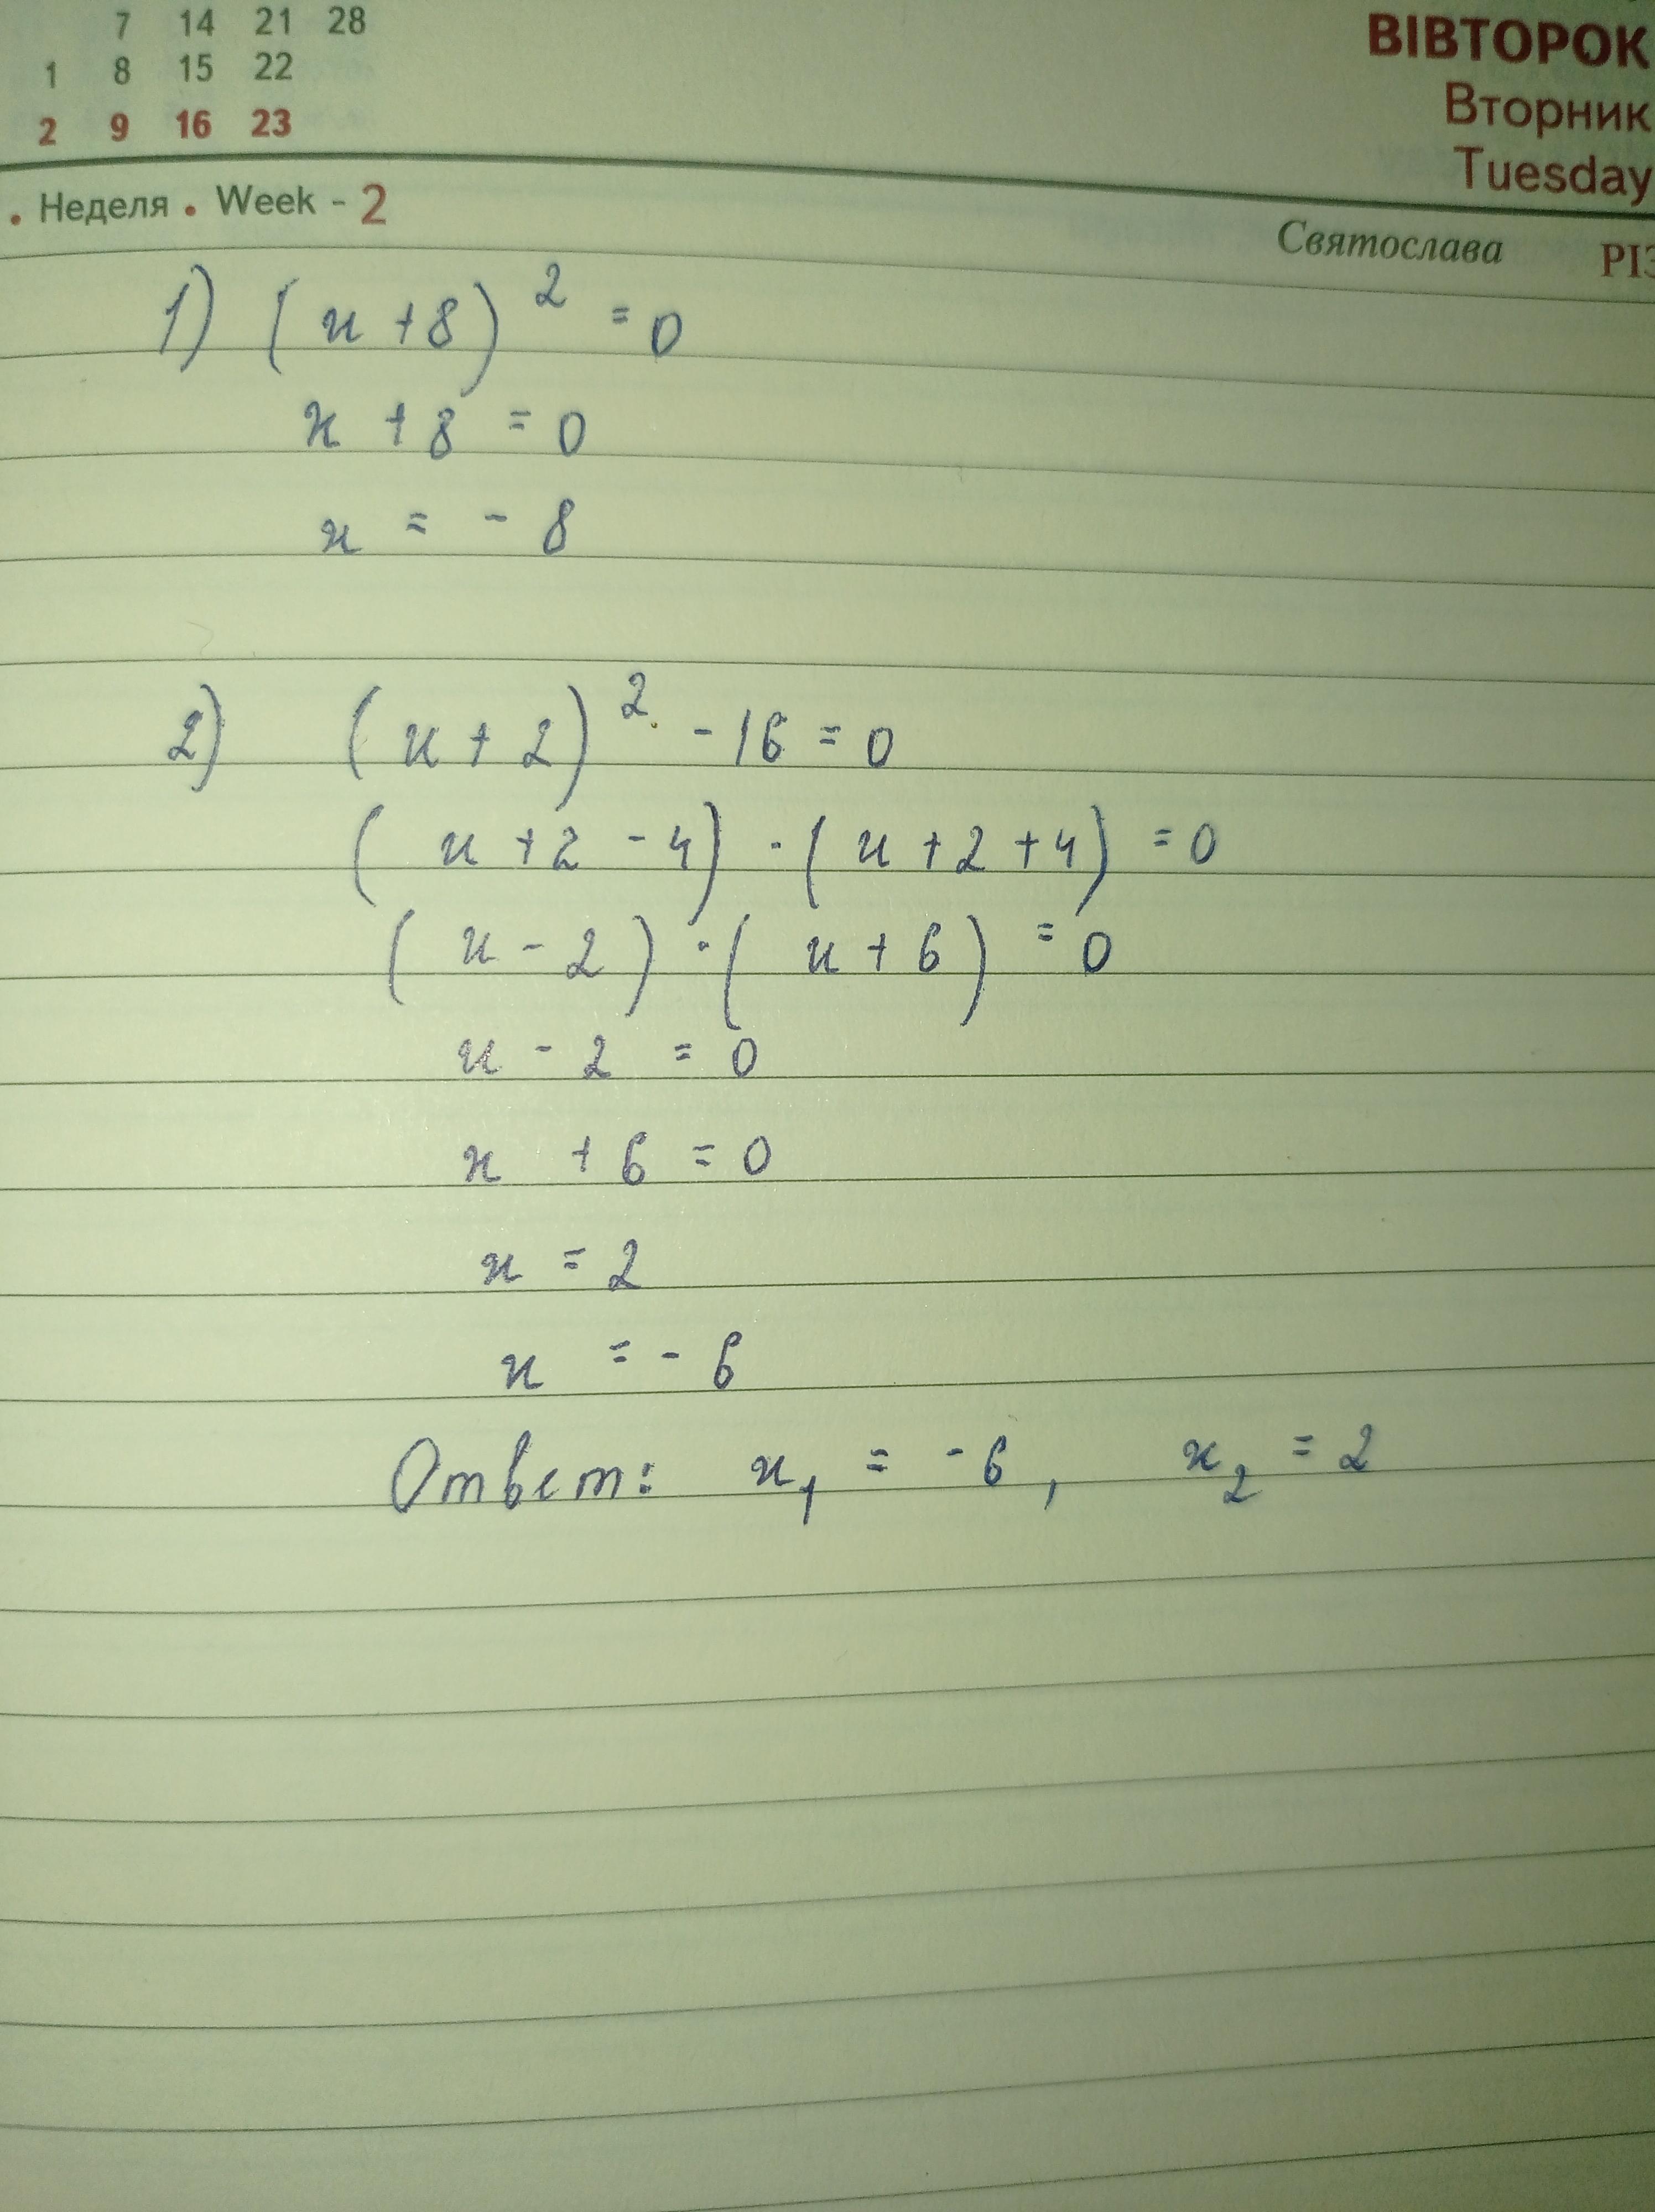 7 14 21 28
1 8 15 22
2 9 16 23
ВІВТОРОК
Вторник
Tuesday
. Неделя . Week - 2
Святослава
РІЗ
1) (x+8)² = 0
x + 8 = 0
x = - 8
2) (x + 2)² - 16 = 0
(x + 2 - 4) · (x + 2 + 4) = 0
(x - 2) · (x + 6) = 0
x - 2 = 0
x + 6 = 0
x = 2
x = - 6
Ответ: x₁ = -6, x₂ = 2